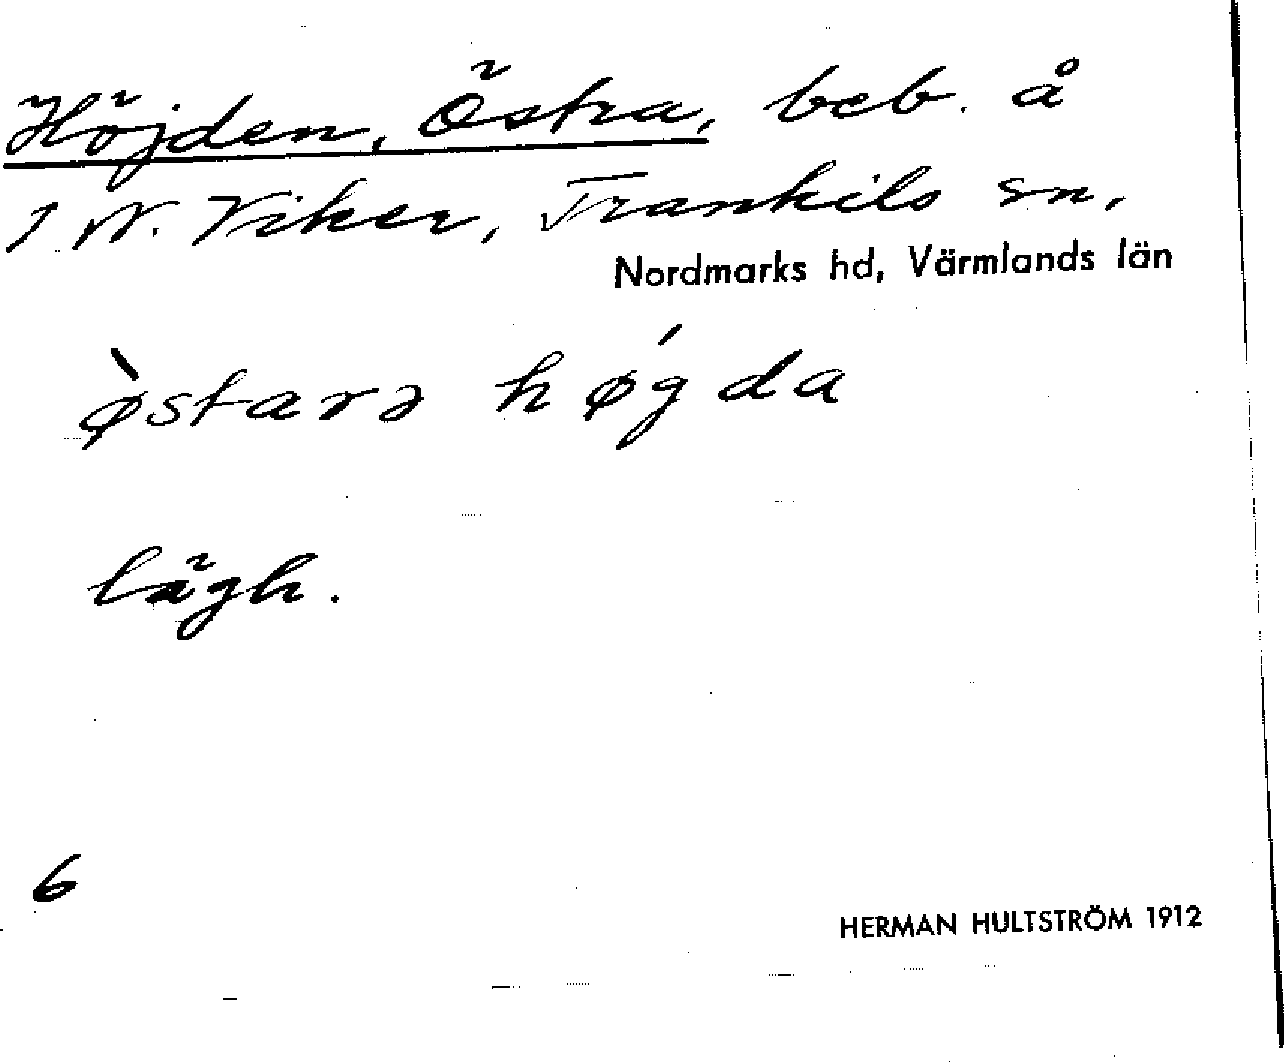 Höjden, Östra, beb. å
1 N. Viker, Trankils sn,
Nordmarks hd, Värmlands län
ø̀starə hǿgda
lägh.
6
HERMAN HULTSTRÖM 1912